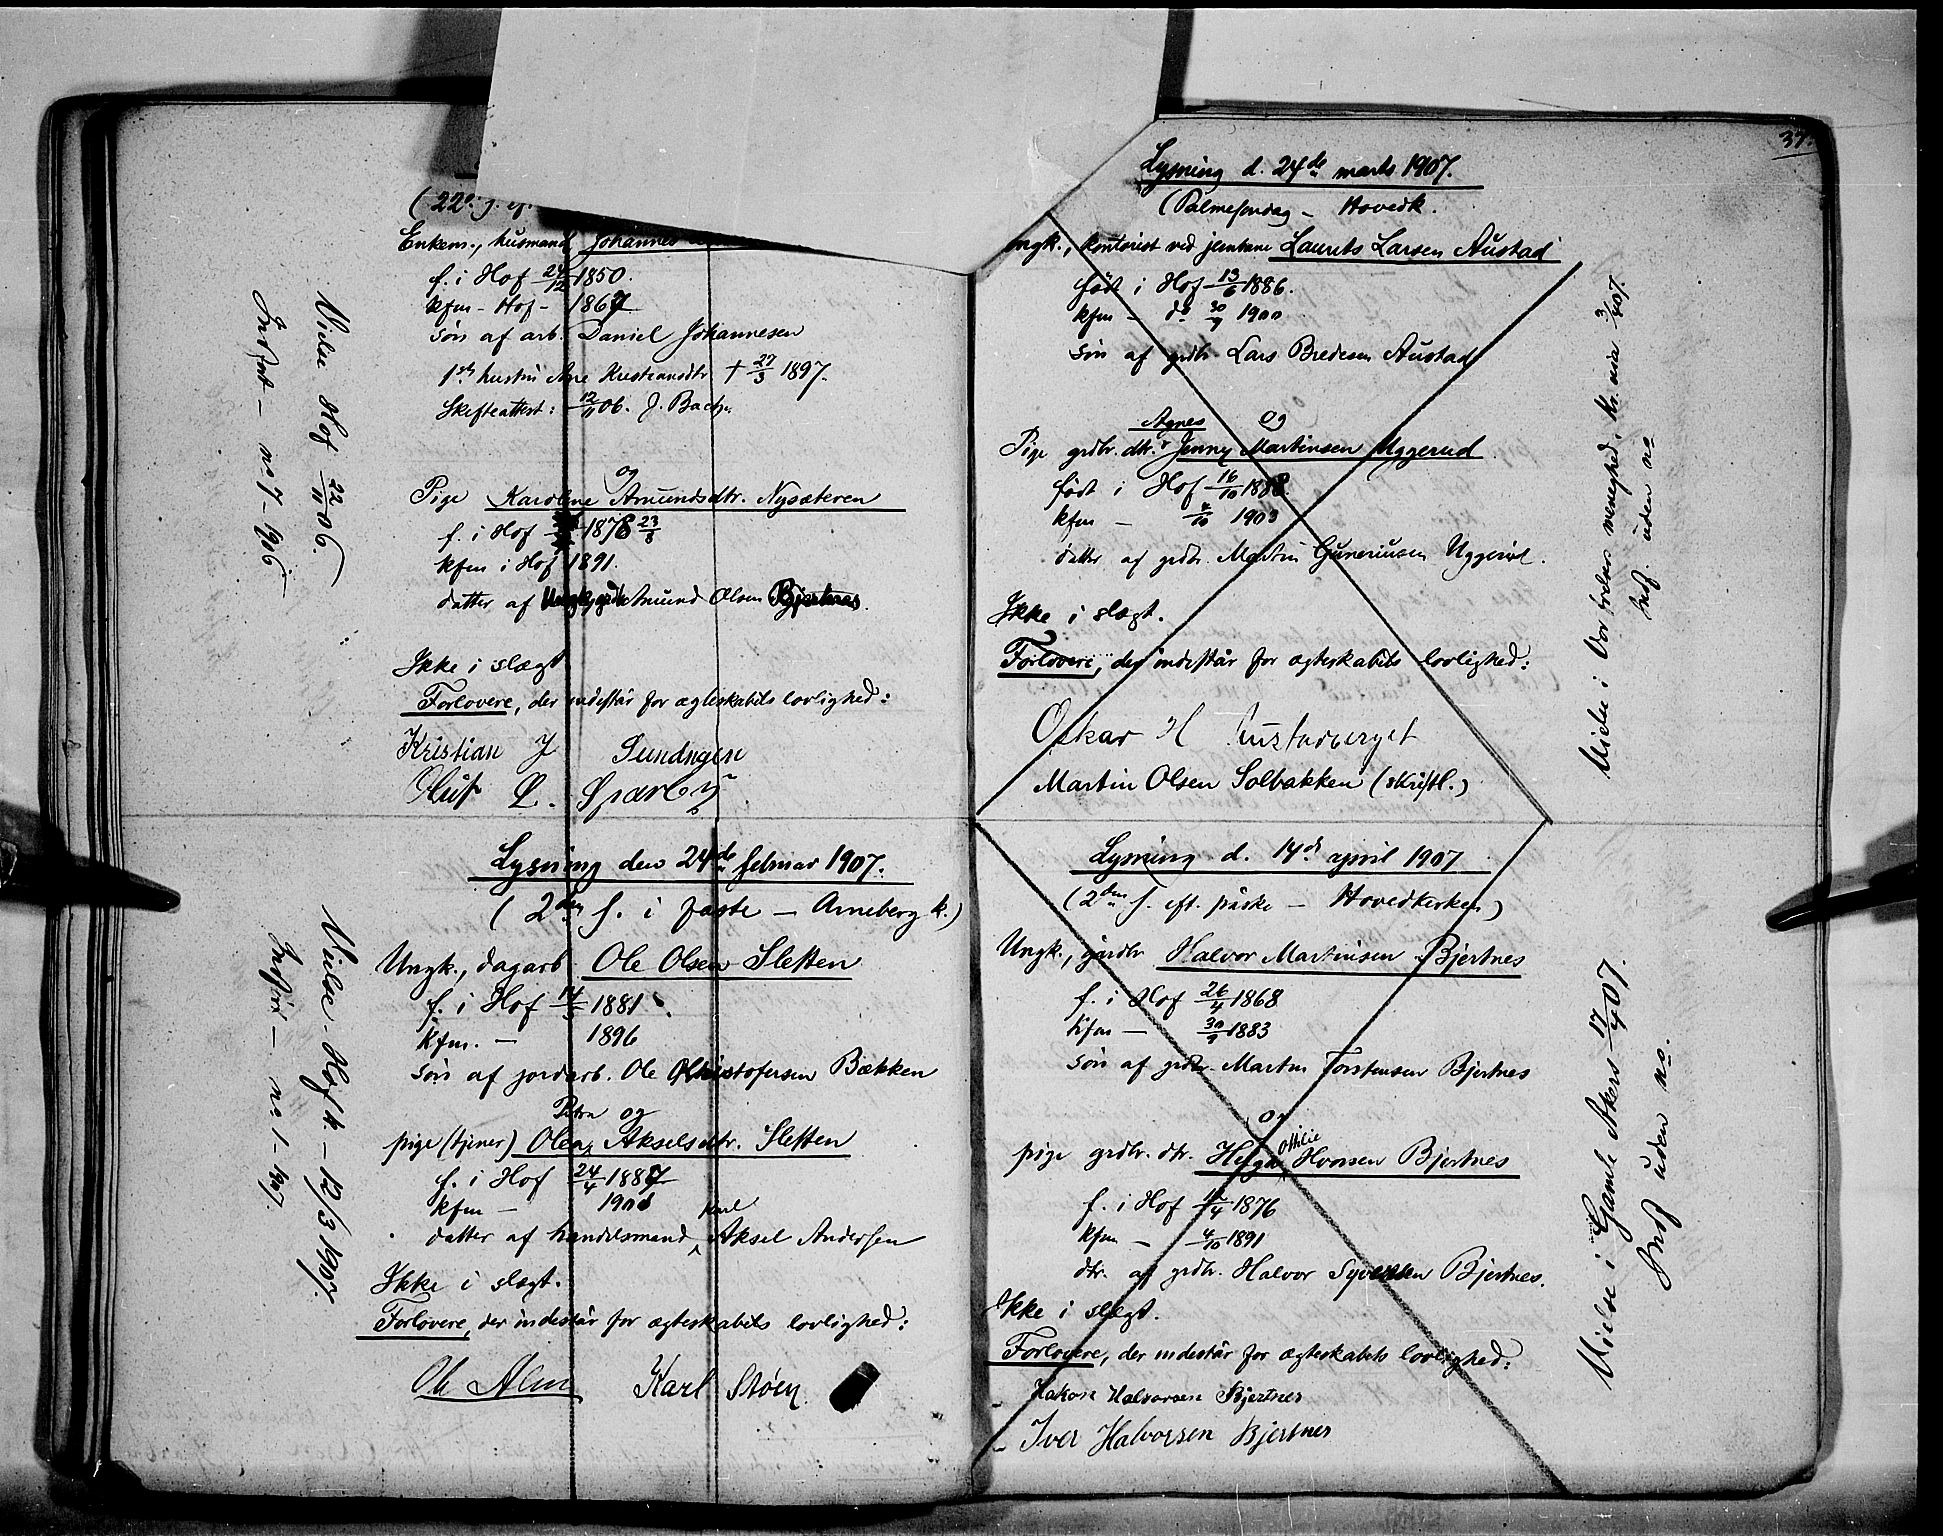 Enkem., husmand Johannes
f. i Hof 24/12 1850.
kfm - Hof - 1867
søn af arb. Daniel Johannesen
1ste hustru Ane Kristiansdtr † 27/3 1897.
Skifteattest: 12/11 06. J. Bache
og
Pige Karoline Amundsdtr. Nysæteren
f. i Hof 1878 23/8
kfm i Hof 1891.
datter af Amund Olsen
Ikke i slægt
Forlovere, der indestår for ægteskabets lovlighed:
Kristian J Sundmoen
Oluf L. Sparby
Viede Hof 22/11 06.
Indført - no 7 - 1906
Lysning den 24de februar 1907.
(2den s. i faste - Arneberg k.)
Ungk., dagarb. Ole Olsen Sletten
f. i Hof 1881
kfm. - 1896
søn af jordarb. Ole Kristofersen Bækken
Petra og
pige (tjener) Olea Akselsdtr. Sletten
f. i Hof 24/4 1887
kfm - 1901
Karl
datter af handelsmand Aksel Andersen
Ikke i slægt.
Forlovere, der indestår for ægteskabets lovlighed:
Ole Alm Karl Støen
Vielse - Hof k. - 12/3 1907.
Indført - no 1 - 1907.
37
Lysning d. 24de marts 1907.
(Palmesøndag - Hovedk.
Ungk., kontorist ved jernbane Laurits Larsen Austad
født i Hof 13/6 1886.
kfm - do 30/9 1900
søn af grdbr. Lars Bredesen Austad
Agnes og
Pige grdbr. dtr. Jenny Martinsen Uggerud
født i Hof 16/10 1888.
kfm - 1903
datter af grdbr. Martin Guneriusen Uggerud.
Ikke i slægt.
Forlovere, der indestår for ægteskabets lovlighed:
Oskar H Austadberget
Martin Olsen Solbakken (skriftl.)
Viede i Vor Frelsers menighed, Kr.ania 3/4 07.
Indf. uden no
Lysning d. 14de april 1907
(2den s. eft. påske - Hovedkirken)
Ungk., gårdbr. Halvor Martinsen Bjertnes
f. i Hof 26/4 1868
kfm - 30/9 1883
søn af grdbr. Martin Torstensen Bjertnes
og
Othilie
pige grdbr. dtr. Helga Hvorsen Bjertnes
f. i Hof 12/4 1876
kfm - 4/10 1891
dtr. af grdbr. Halvor Syversen Bjertnes.
Ikke i slægt.
Forlovere, der indestår for ægteskabets lovlighed:
Hakon Halvorsen Bjertnes
- Iver Halvorsen Bjertnes
Vielse i Gamle Akers 17/4 07.
Indf uden no.